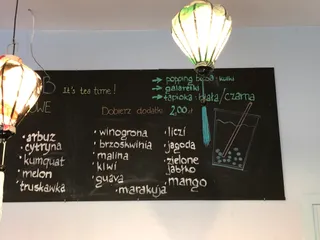 B It's tea time!
→ popping boba/kulki
→ galaretki
→ tapioka biała/czarna
OWE
Dobierz dodatki 2,00zł
• arbuz
• cytryna
• kumquat
• melon
• truskawka
• winogrona
• brzoskwinia
• malina
• kiwi
• guava
• marakuja
• liczi
• jagoda
• zielone
jabłko
• mango